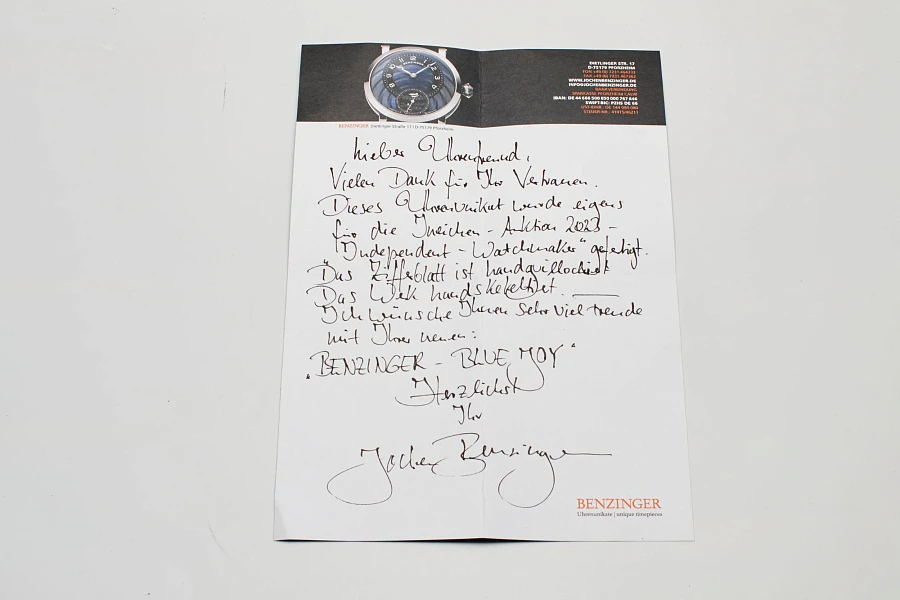 DIETLINGER STR. 17
D-75179 PFORZHEIM
WWW.JOCHENBENZINGER.DE
INFO@JOCHENBENZINGER.DE
BANKVERBINDUNG
SPARKASSE PFORZHEIM CALW
BENZINGER Dietlinger Straße 17 | D-75179 Pforzheim
Lieber Uhrenfreund,
Vielen Dank für Ihr Vertrauen.
Dieses Uhrenunikat wurde eigens
für die Ineichen - Auktion 2023 -
"Independent - Watchmaker" gefertigt.
Das Zifferblatt ist handguillochiert
Das Werk handskelettiert.
Ich wünsche Ihnen sehr viel Freude
mit Ihrer neuen:
"BENZINGER - BLUE JOY"
Herzlichst
Ihr
Jochen Benzinger
BENZINGER
Uhrenunikate | unique timepieces